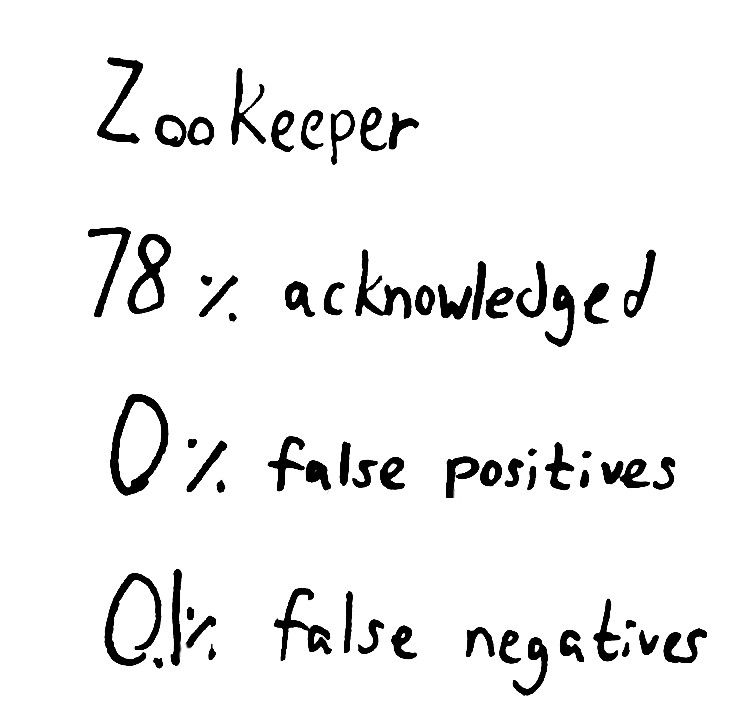 ZooKeeper
78% acknowledged
0% false positives
0.1% false negatives